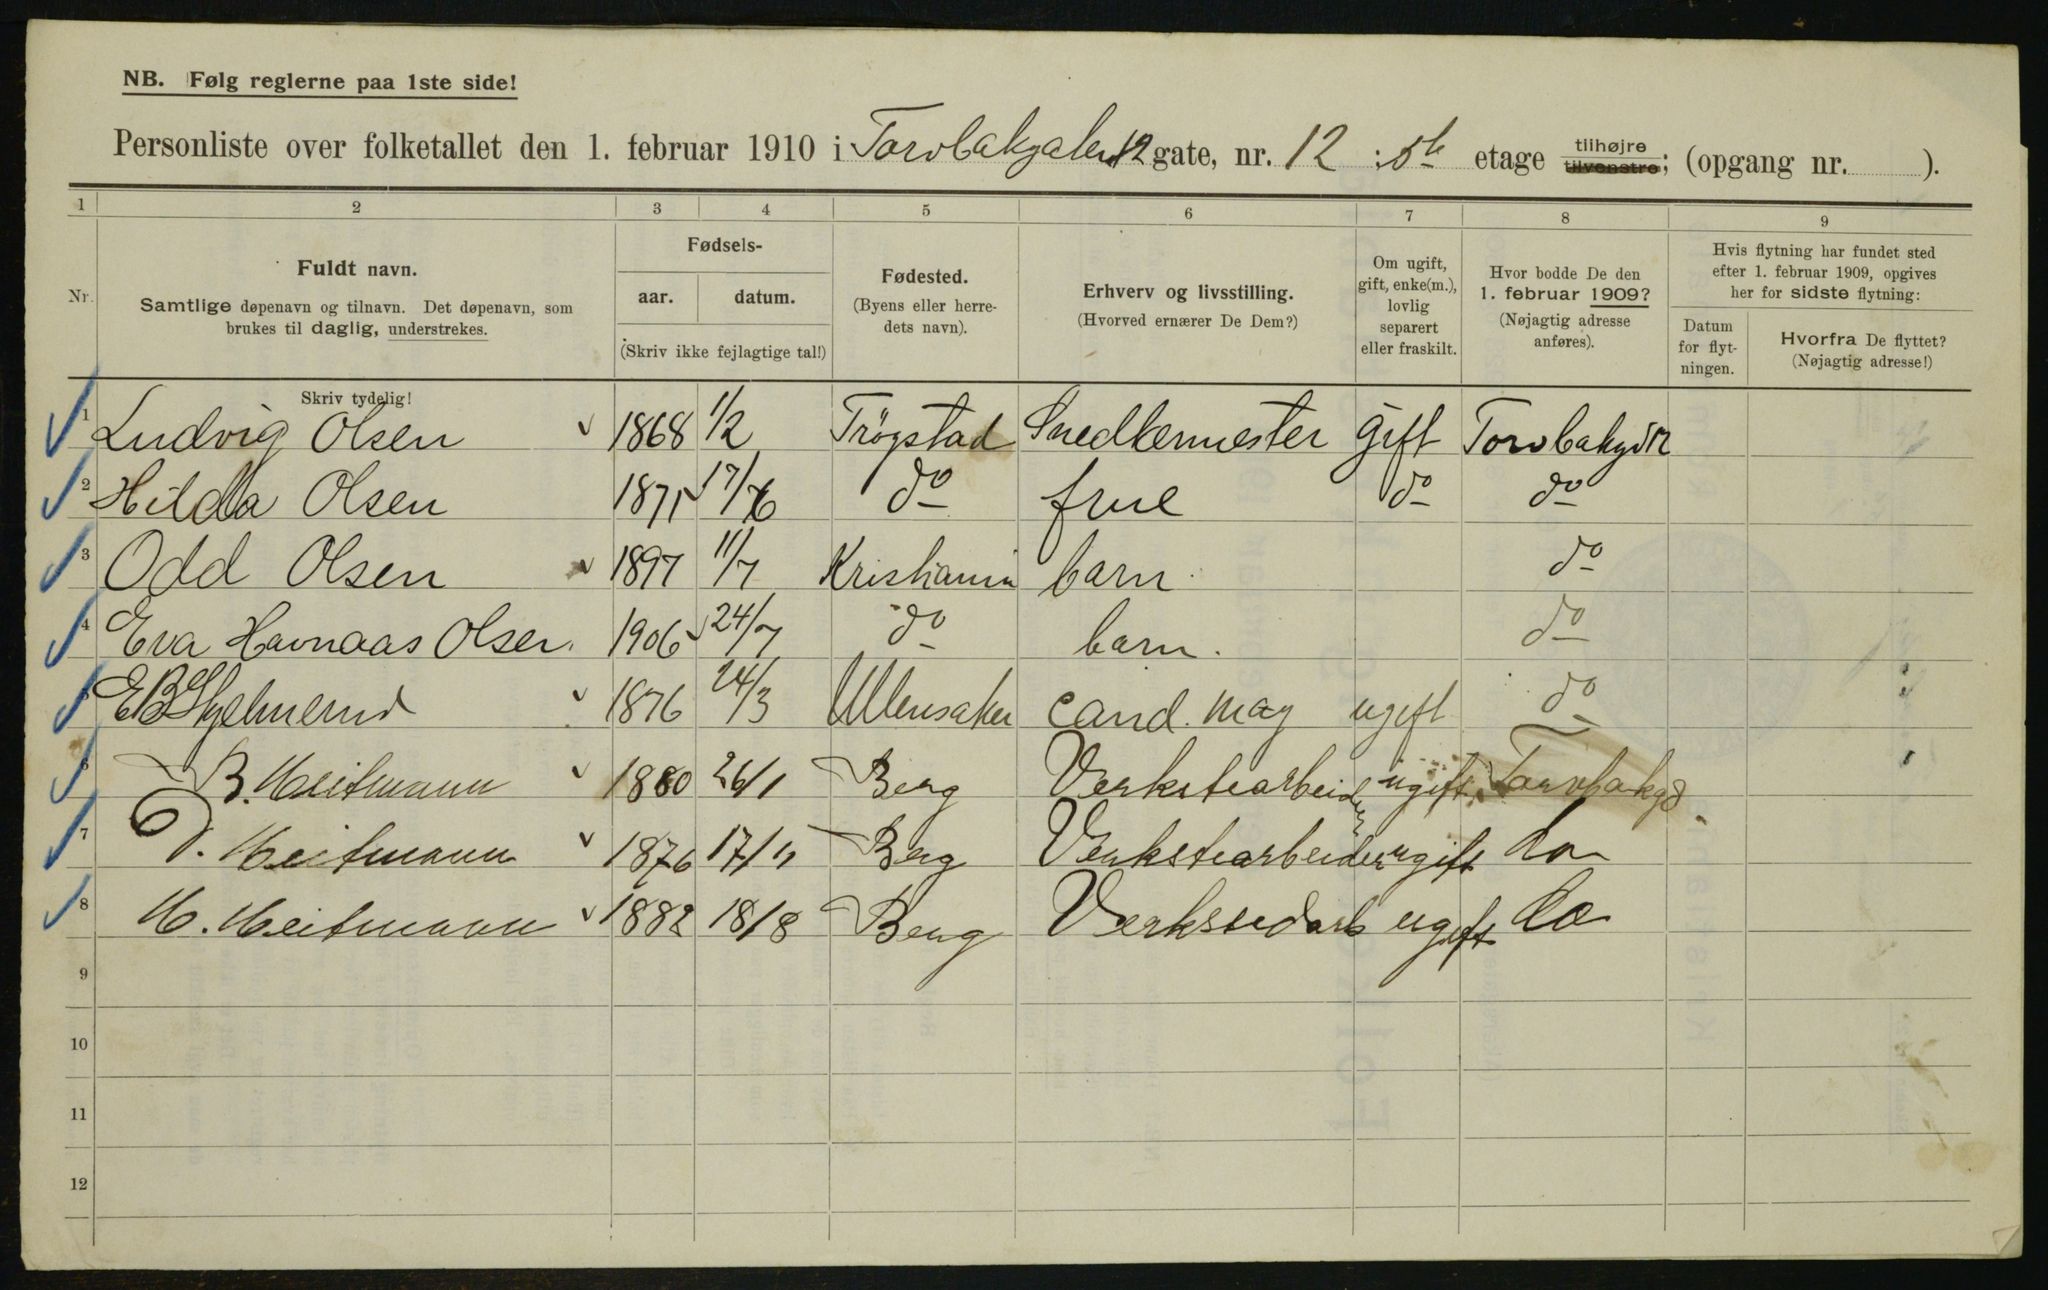 NB. Følg reglerne paa 1ste side!
Personliste over folketallet den 1. februar 1910 i Torvbakgaten 12 gate, nr. 12 : 5te etage tilhøjre tilvenstre; (opgang nr. ).
1 2 3 4 5 6 7 8 9
Nr. Fuldt navn. Samtlige døpenavn og tilnavn. Det døpenavn, som brukes til daglig, understrekes.
Fødsels- aar. datum. (Skriv ikke fejlagtige tal!)
Fødested. (Byens eller herredets navn).
Erhverv og livsstilling. (Hvorved ernærer De Dem?)
Om ugift, gift, enke(m.), lovlig separert eller fraskilt.
Hvor bodde De den 1. februar 1909? (Nøjagtig adresse anføres).
Hvis flytning har fundet sted efter 1. februar 1909, opgives her for sidste flytning:
Datum for flytningen. Hvorfra De flyttet? (Nøjagtig adresse!)
Skriv tydelig!
1 Ludvig Olsen 1868 1/2 Trögstad Snedkermester gift Torvbakgd 12
2 Hilda Olsen 1871 17/6 do frue do do
3 Odd Olsen 1897 11/7 Kristiania barn. do
4 Eva Havnaas Olsen. 1906 24/7 do barn. do
5 E B 1876 24/3 Ullensaker cand. mag ugift do
6 B. Heitmann 1880 26/1 Berg Verkstearbeider ugift Torvbakgd
7 D. Heitmann 1876 17/11 Berg Verkstearbeider ugift do
8 H. Heitmann 1882 18/8 Berg Verkstedarb ugift do
9
10
11
12